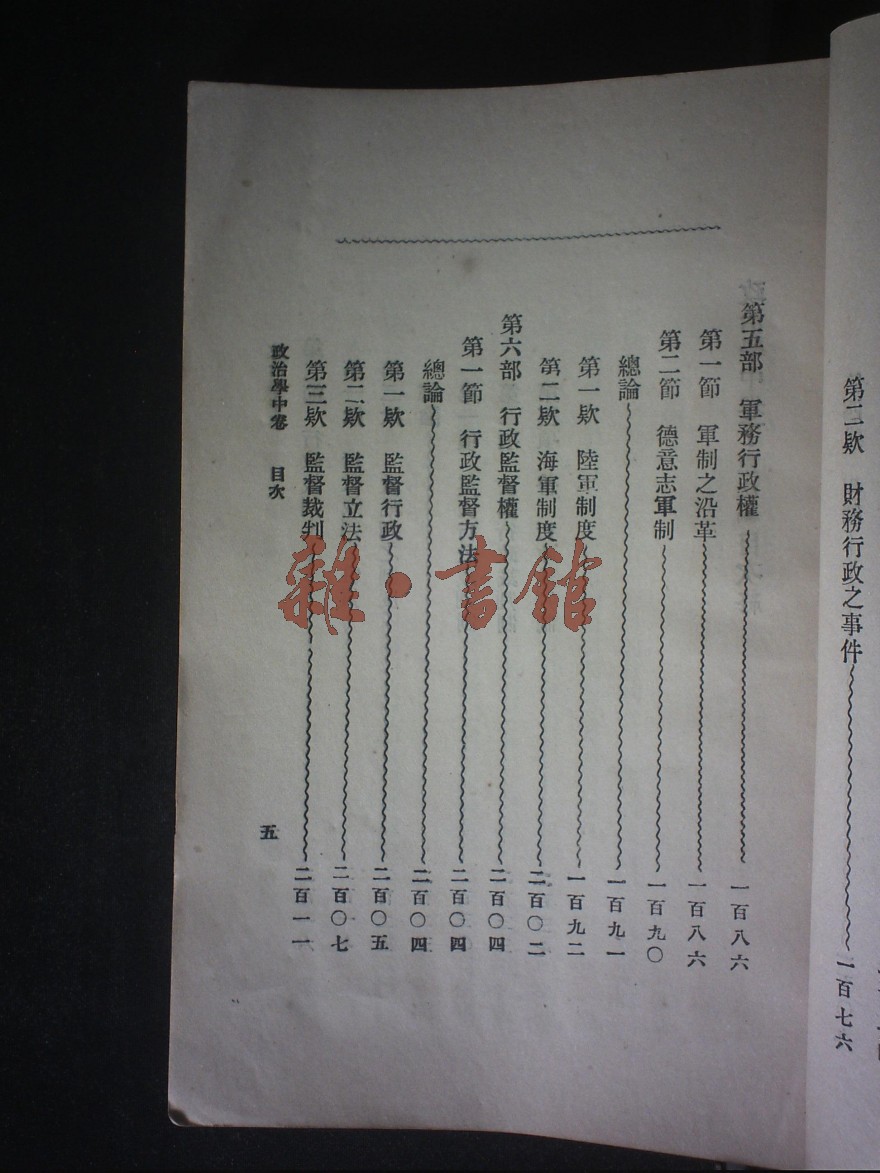 第二欵　財務行政之事件　一百七六
第五部　軍務行政權　一百八六
第一節　軍制之沿革　一百八六
第二節　德意志軍制　一百九〇
總論　一百九一
第一欵　陸軍制度　一百九二
第二欵　海軍制度　二百〇二
第六部　行政監督權　二百〇四
第一節　行政監督方法　二百〇四
總論　二百〇四
第一欵　監督行政　二百〇五
第二欵　監督立法　二百〇七
第三欵　監督裁判　二百一一
政治學中卷　目次　五
雜·書館